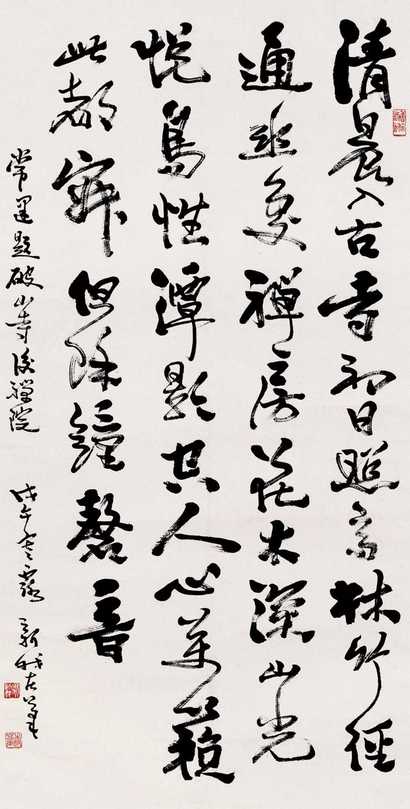 清晨入古寺初日照高林竹徑
通幽處禪房花木深山光
悅鳥性潭影空人心萬籟
此都寂但餘鐘磬音
常建題破山寺後禪院 戊午寒露 新我左筆